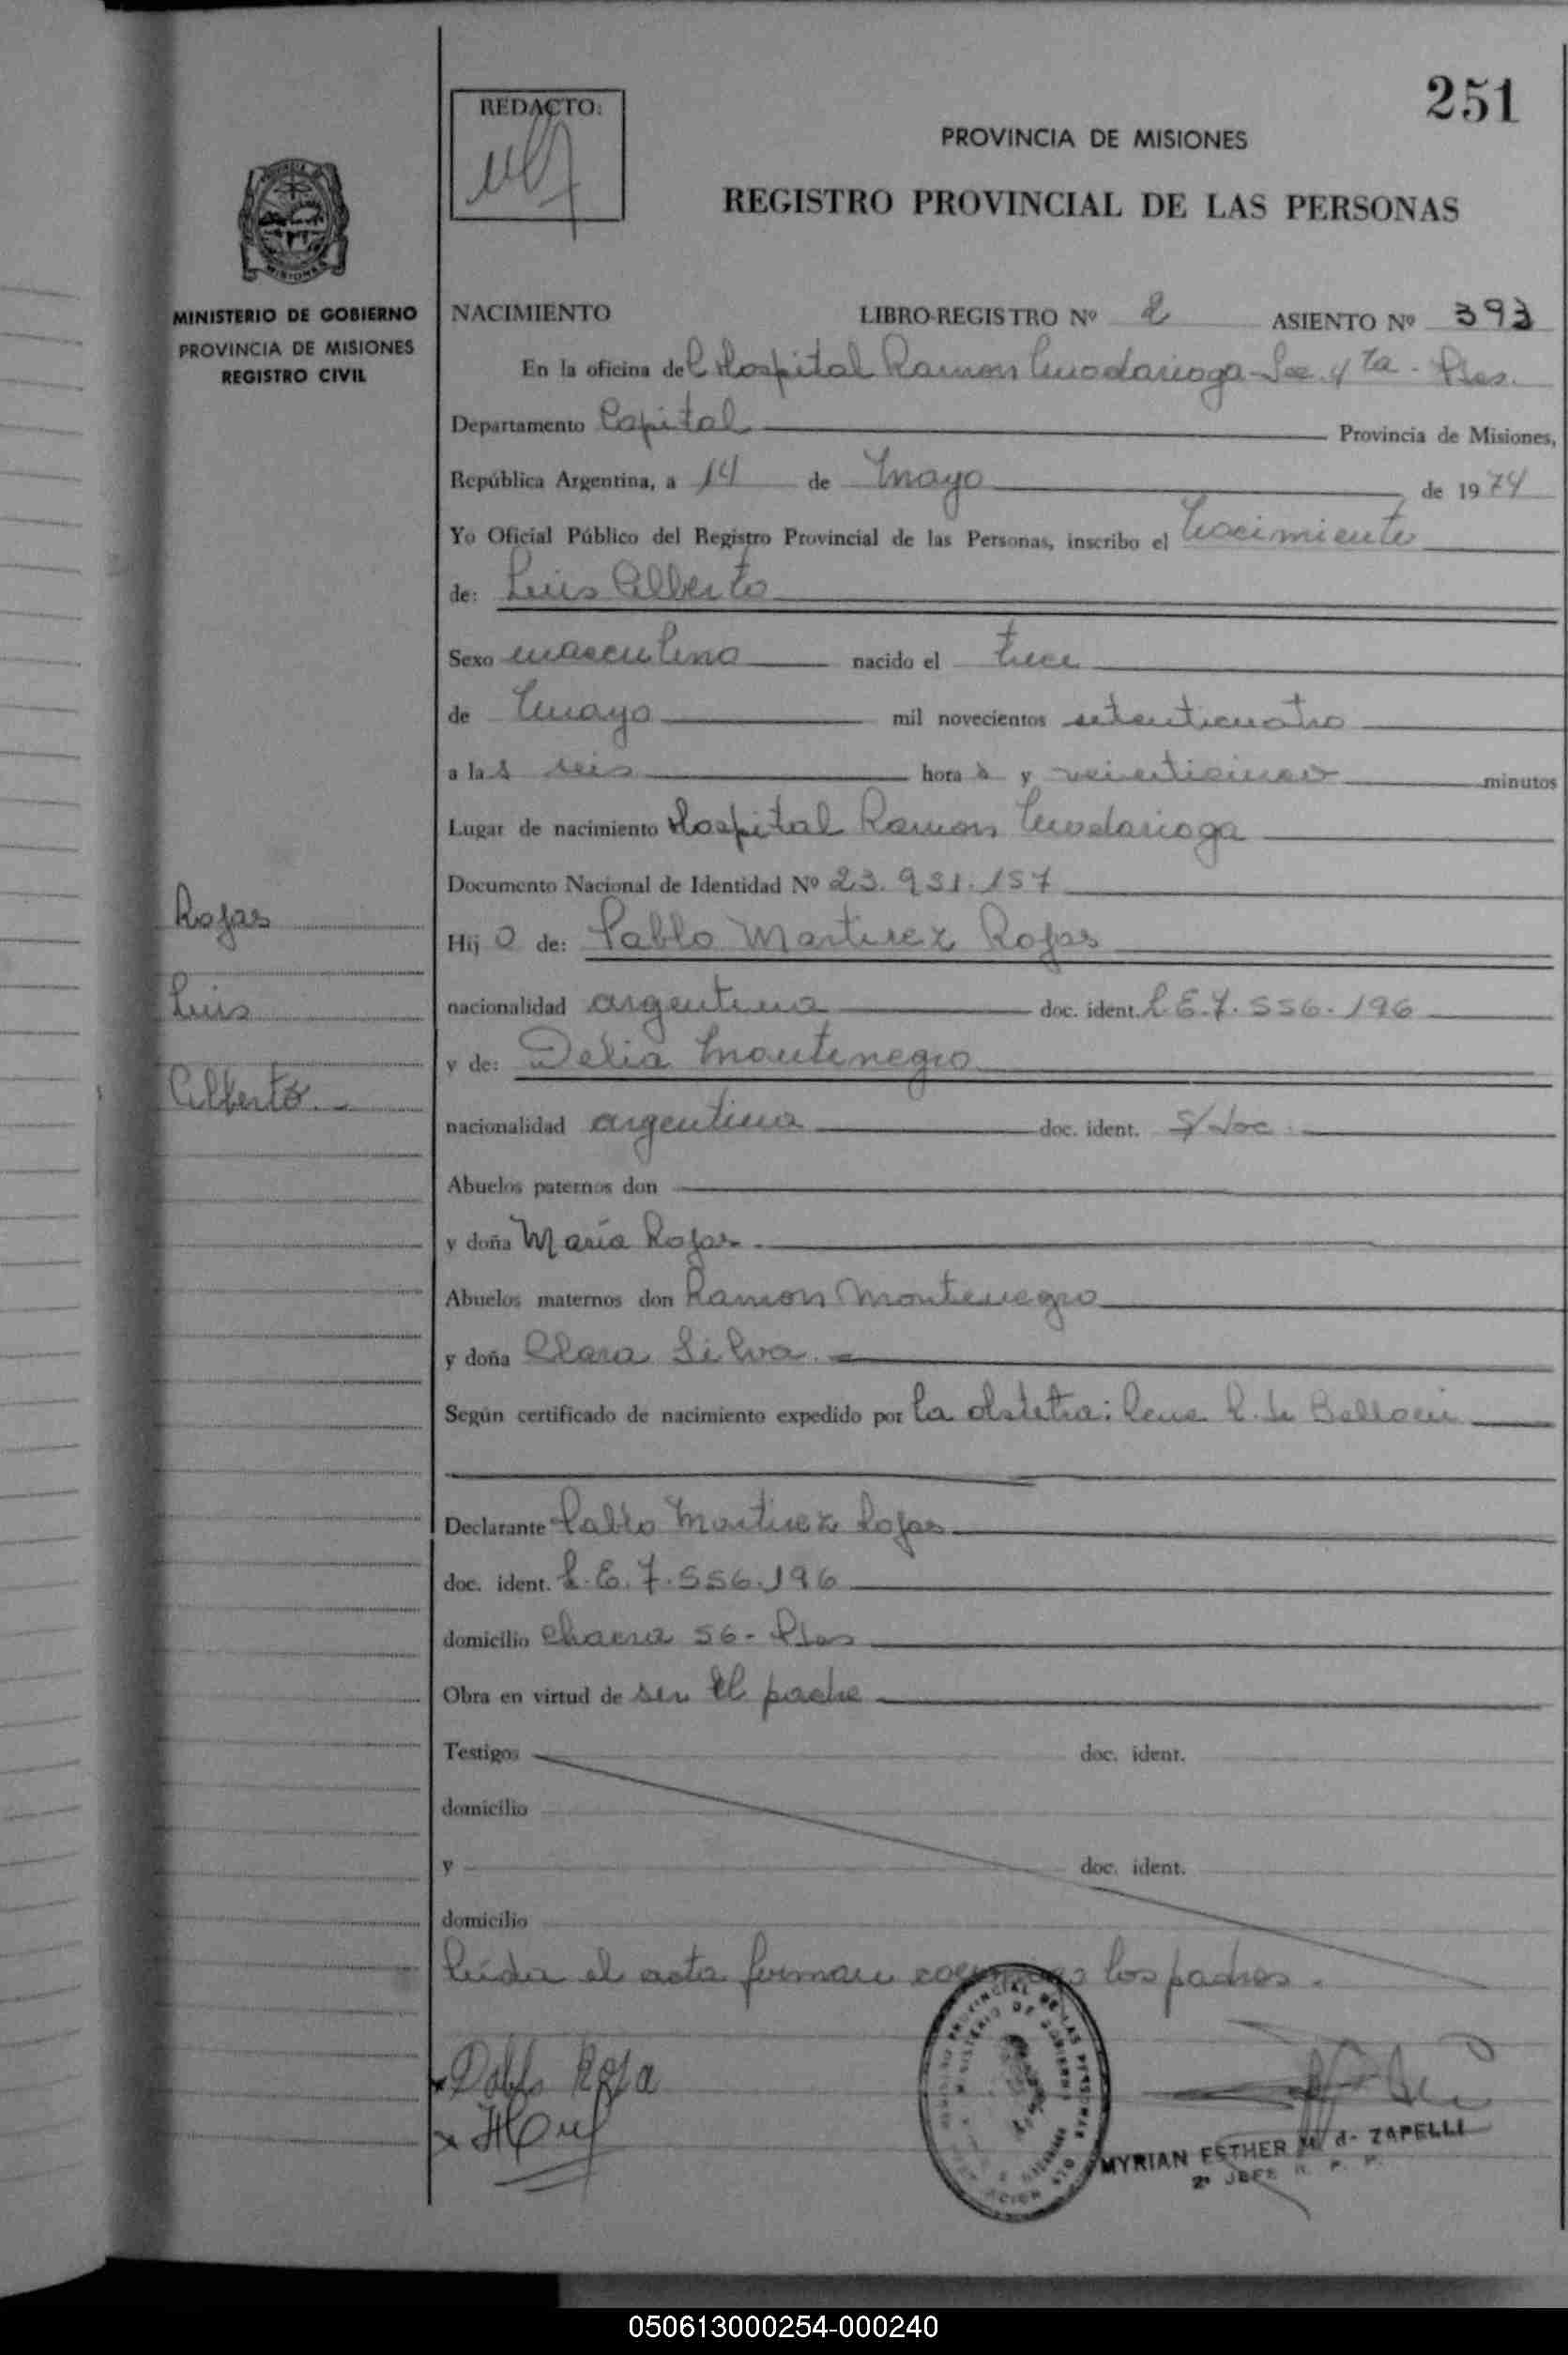 251
REDACTO:
PROVINCIA DE MISIONES
REGISTRO PROVINCIAL DE LAS PERSONAS
MINISTERIO DE GOBIERNO
PROVINCIA DE MISIONES
REGISTRO CIVIL
NACIMIENTO LIBRO-REGISTRO Nº 2 ASIENTO Nº 393
En la oficina del Hospital Ramon Madariaga - Sec. 4ta - Pdas.
Departamento Capital Provincia de Misiones,
República Argentina, a 14 de Mayo de 1974
Yo Oficial Público del Registro Provincial de las Personas, inscribo el Nacimiento
de: Luis Alberto
Sexo masculino nacido el trece
de Mayo mil novecientos setenticuatro
a las seis horas y veinticinco minutos
Lugar de nacimiento Hospital Ramon Madariaga
Documento Nacional de Identidad Nº 23.931.157
Rojas
Hijo de: Pablo Martirez Rojas
Luis
nacionalidad argentina doc. ident. L.E.7.556.196
y de: Delia Montenegro
Alberto
nacionalidad argentina doc. ident. s/doc.
Abuelos paternos don
y doña María Rojas
Abuelos maternos don Ramon Montenegro
y doña Clara Silva.
Según certificado de nacimiento expedido por la obstetra: de
Declarante Pablo Martirez Rojas
doc. ident. L.E.7.556.196
domicilio Chacra 56 - Pdas
Obra en virtud de ser el padre
Testigos doc. ident.
domicilio
y doc. ident.
domicilio
Leída el acta firman los padres.
Pablo Roja
MYRIAN ESTHER M. d- ZAPELLI
2º JEFE R. P. P.
050613000254-000240